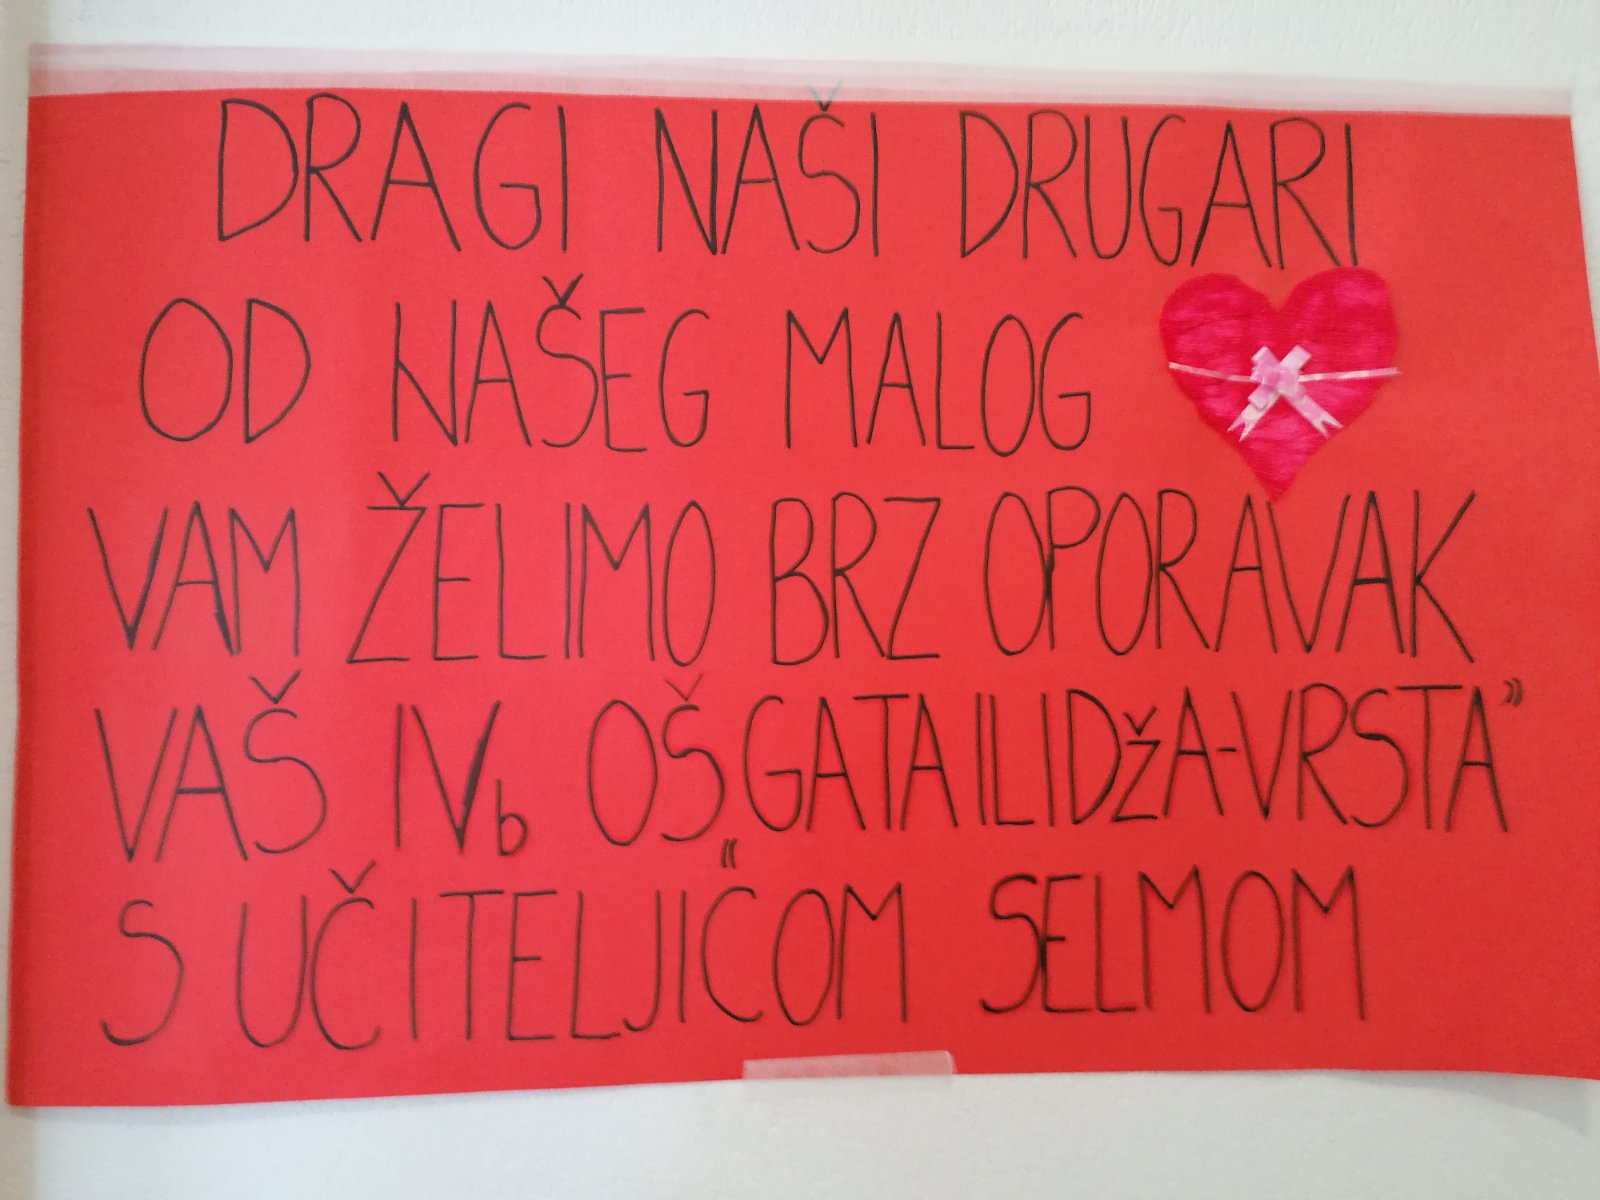 DRAGI NAŠI DRUGARI
OD NAŠEG MALOG
VAM ŽELIMO BRZ OPORAVAK
VAŠ IVb OŠ „GATA ILIDžA-VRSTA”
S UČITELJICOM SELMOM